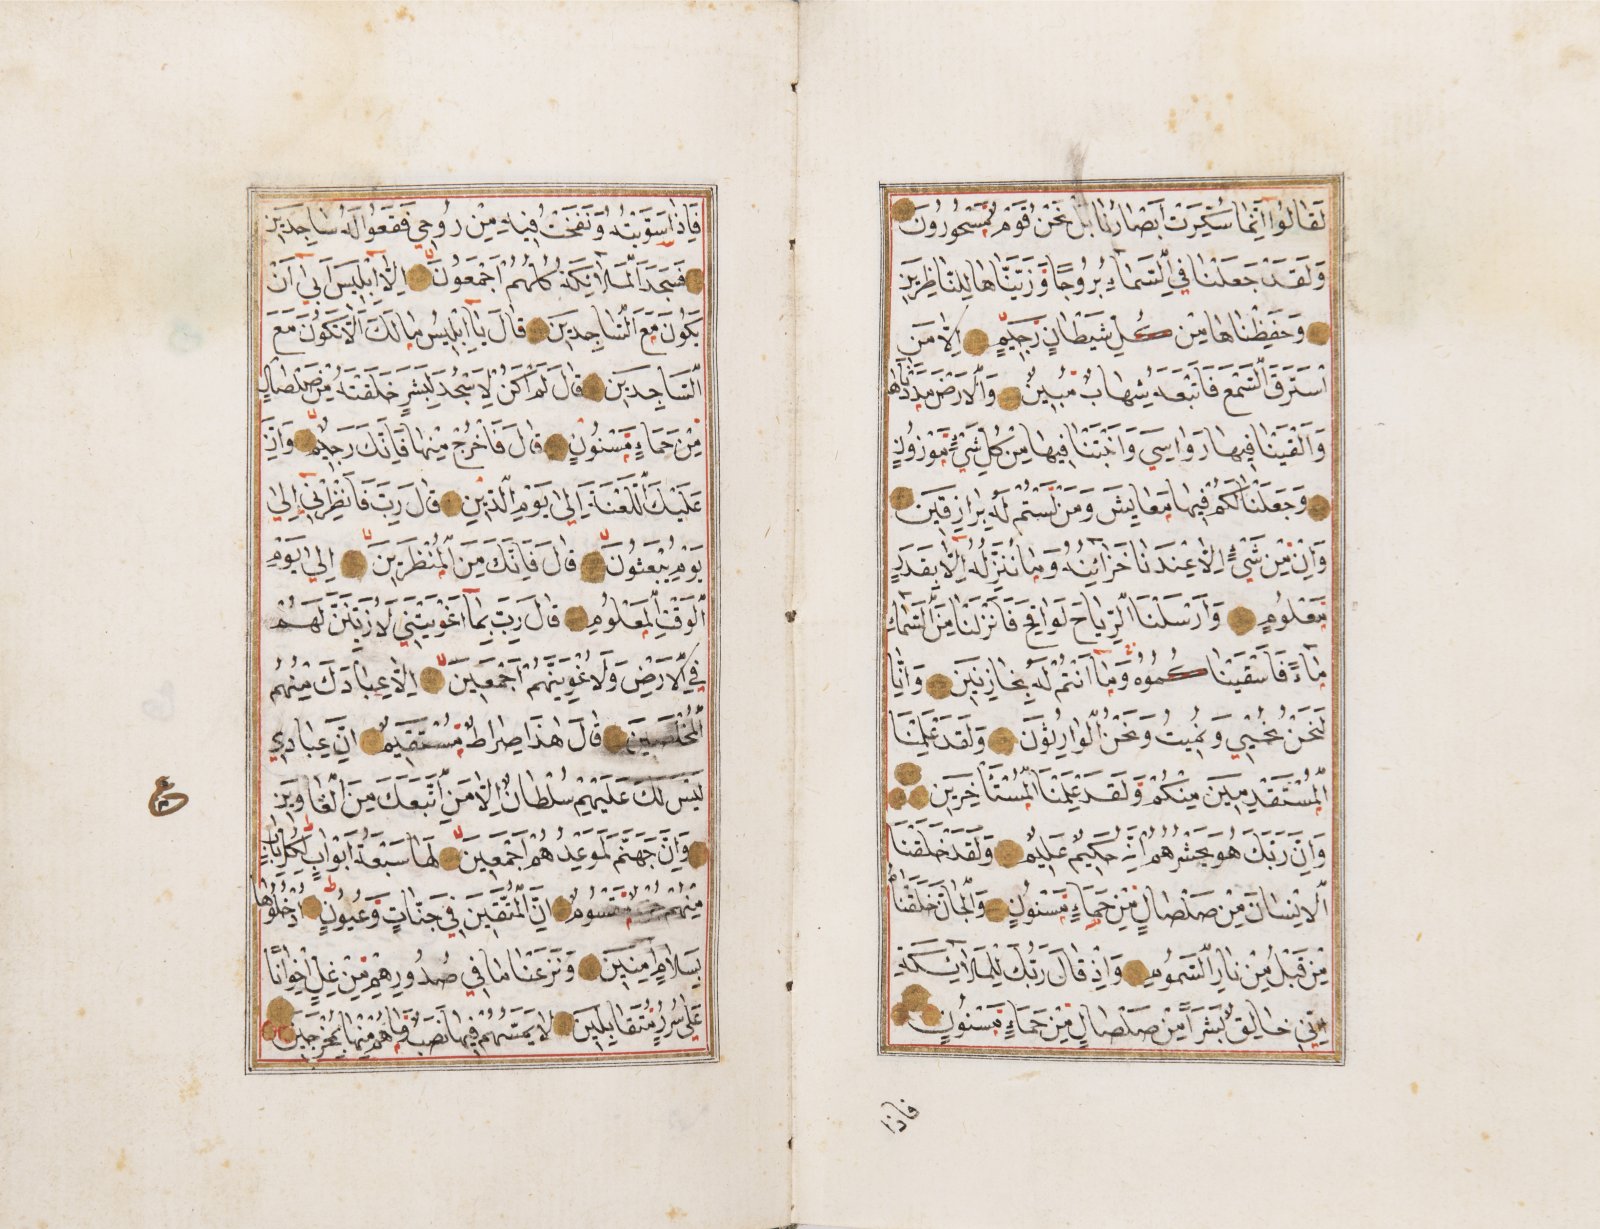 لَقَالُوا اِنَّمَا سُكِّرَتْ اَبْصَارُنَا بَلْ نَحْنُ قَوْمٌ مَسْحُورُونَ
وَلَقَدْ جَعَلْنَا فِي السَّمَاءِ بُرُوجًا وَزَيَّنَّاهَا لِلنَّاظِرِينَ
وَحَفِظْنَاهَا مِنْ كُلِّ شَيْطَانٍ رَجِيمٍ اِلَّا مَنِ
اسْتَرَقَ السَّمْعَ فَاَتْبَعَهُ شِهَابٌ مُبِينٌ وَالْاَرْضَ مَدَدْنَاهَا
وَاَلْقَيْنَا فِيهَا رَوَاسِيَ وَاَنْبَتْنَا فِيهَا مِنْ كُلِّ شَيْءٍ مَوْزُونٍ
وَجَعَلْنَا لَكُمْ فِيهَا مَعَايِشَ وَمَنْ لَسْتُمْ لَهُ بِرَازِقِينَ
وَاِنْ مِنْ شَيْءٍ اِلَّا عِنْدَنَا خَزَائِنُهُ وَمَا نُنَزِّلُهُ اِلَّا بِقَدَرٍ
مَعْلُومٍ وَاَرْسَلْنَا الرِّيَاحَ لَوَاقِحَ فَاَنْزَلْنَا مِنَ السَّمَاءِ
مَاءً فَاَسْقَيْنَاكُمُوهُ وَمَا اَنْتُمْ لَهُ بِخَازِنِينَ وَاِنَّا
لَنَحْنُ نُحْيِي وَنُمِيتُ وَنَحْنُ الْوَارِثُونَ وَلَقَدْ عَلِمْنَا
الْمُسْتَقْدِمِينَ مِنْكُمْ وَلَقَدْ عَلِمْنَا الْمُسْتَأْخِرِينَ
وَاِنَّ رَبَّكَ هُوَ يَحْشُرُهُمْ اِنَّهُ حَكِيمٌ عَلِيمٌ وَلَقَدْ خَلَقْنَا
الْاِنْسَانَ مِنْ صَلْصَالٍ مِنْ حَمَاءٍ مَسْنُونٍ وَالْجَانَّ خَلَقْنَاهُ
مِنْ قَبْلُ مِنْ نَارِ السَّمُومِ وَاِذْ قَالَ رَبُّكَ لِلْمَلَائِكَةِ
اِنِّي خَالِقٌ بَشَرًا مِنْ صَلْصَالٍ مِنْ حَمَاءٍ مَسْنُونٍ
فاذا
فَاِذَا سَوَّيْتُهُ وَنَفَخْتُ فِيهِ مِنْ رُوحِي فَقَعُوا لَهُ سَاجِدِينَ
فَسَجَدَ الْمَلَائِكَةُ كُلُّهُمْ اَجْمَعُونَ اِلَّا اِبْلِيسَ اَبَى اَنْ
يَكُونَ مَعَ السَّاجِدِينَ قَالَ يَا اِبْلِيسُ مَا لَكَ اَلَّا تَكُونَ مَعَ
السَّاجِدِينَ قَالَ لَمْ اَكُنْ لِاَسْجُدَ لِبَشَرٍ خَلَقْتَهُ مِنْ صَلْصَالٍ
مِنْ حَمَاءٍ مَسْنُونٍ قَالَ فَاخْرُجْ مِنْهَا فَاِنَّكَ رَجِيمٌ وَاِنَّ
عَلَيْكَ اللَّعْنَةَ اِلَى يَوْمِ الدِّينِ قَالَ رَبِّ فَاَنْظِرْنِي اِلَى
يَوْمِ يُبْعَثُونَ قَالَ فَاِنَّكَ مِنَ الْمُنْظَرِينَ اِلَى يَوْمِ
الْوَقْتِ الْمَعْلُومِ قَالَ رَبِّ بِمَا اَغْوَيْتَنِي لَاُزَيِّنَنَّ لَهُمْ
فِي الْاَرْضِ وَلَاُغْوِيَنَّهُمْ اَجْمَعِينَ اِلَّا عِبَادَكَ مِنْهُمُ
الْمُخْلَصِينَ قَالَ هَذَا صِرَاطٌ مُسْتَقِيمٌ اِنَّ عِبَادِي
لَيْسَ لَكَ عَلَيْهِمْ سُلْطَانٌ اِلَّا مَنِ اتَّبَعَكَ مِنَ الْغَاوِينَ
وَاِنَّ جَهَنَّمَ لَمَوْعِدُهُمْ اَجْمَعِينَ لَهَا سَبْعَةُ اَبْوَابٍ لِكُلِّ بَابٍ
مِنْهُمْ جُزْءٌ مَقْسُومٌ اِنَّ الْمُتَّقِينَ فِي جَنَّاتٍ وَعُيُونٍ اُدْخُلُوهَا
بِسَلَامٍ اٰمِنِينَ وَنَزَعْنَا مَا فِي صُدُورِهِمْ مِنْ غِلٍّ اِخْوَانًا
عَلَى سُرُرٍ مُتَقَابِلِينَ لَا يَمَسُّهُمْ فِيهَا نَصَبٌ وَمَا هُمْ مِنْهَا بِمُخْرَجِينَ
ع